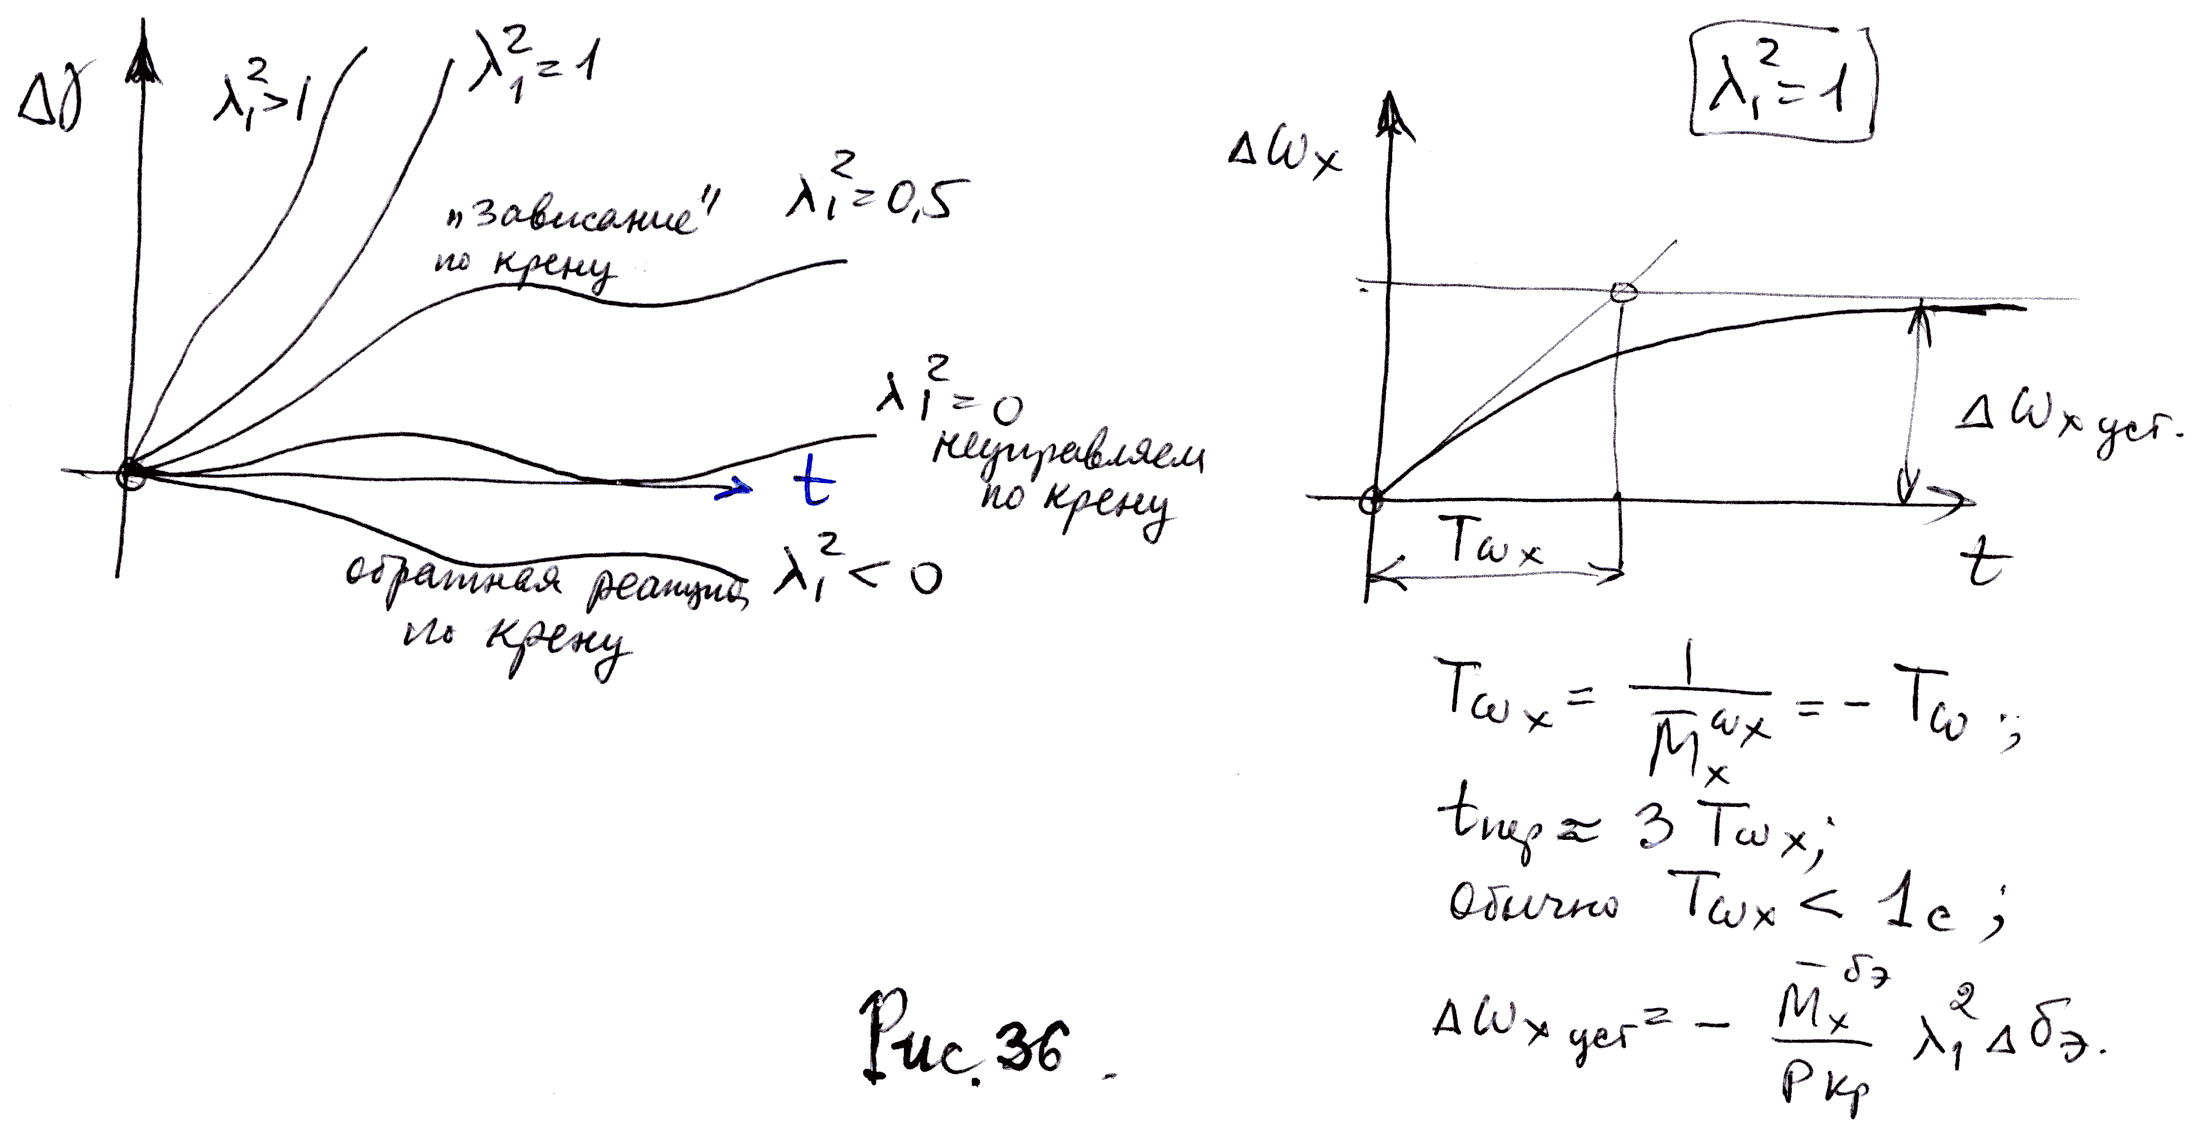 Δγ
λ₁²>1
λ₁²=1
„Зависание” λ₁²=0,5
по крену
λ₁²=0
неуправляем
по крену
t
обратная реакция λ₁²<0
по крену
λ₁²=1
Δωx
Δωx уст.
Tωx
t
Tωx = 1/M̄x^ωx = - Tω ;
tпер ≈ 3 Tωx;
Обычно Tωx < 1с ;
Δωx уст = - M̄x^δэ/Pкр λ₁² Δδэ.
Рис. 36.